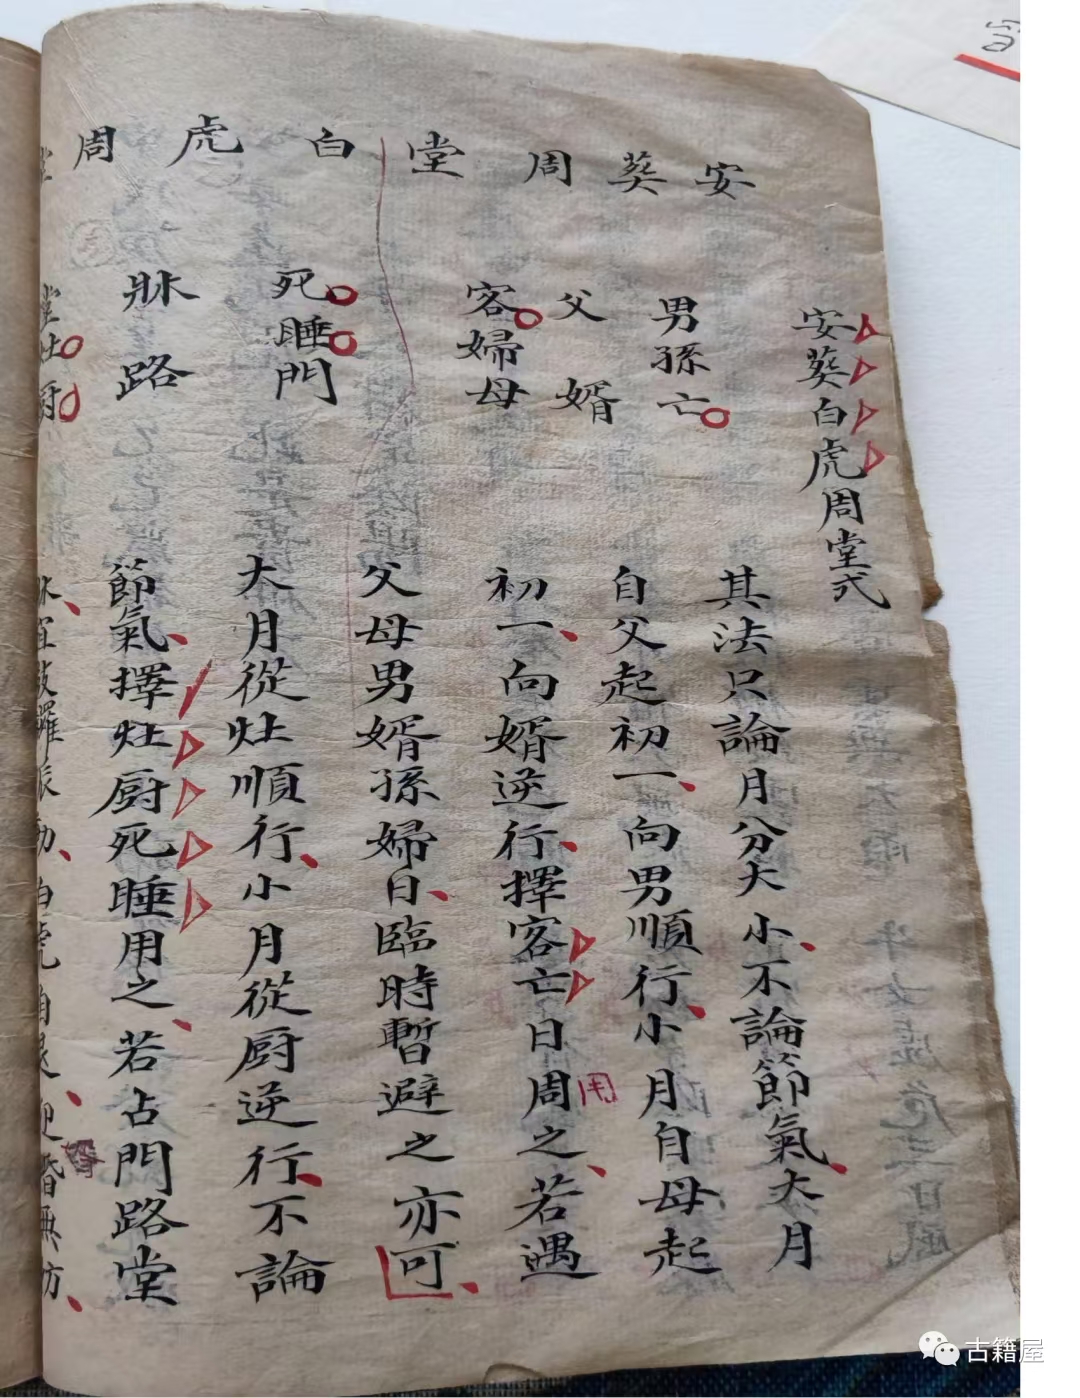 安葵白虎周堂式
安葵周堂
男孫亡
父婿
客婦母
白虎周堂
死睡門
牀路
堂灶厨
其法只論月分大小不論節氣大月
自父起初一向男順行小月自母起
初一向婿逆行擇客亡日周之若遇
用
父母男婿孫婦日臨時暫避之亦可
大月從灶順行小月從厨逆行不論
節氣擇灶厨死睡用之若占門路堂
牀宜鼓羅振動白虎自退迎婚無妨
古籍屋